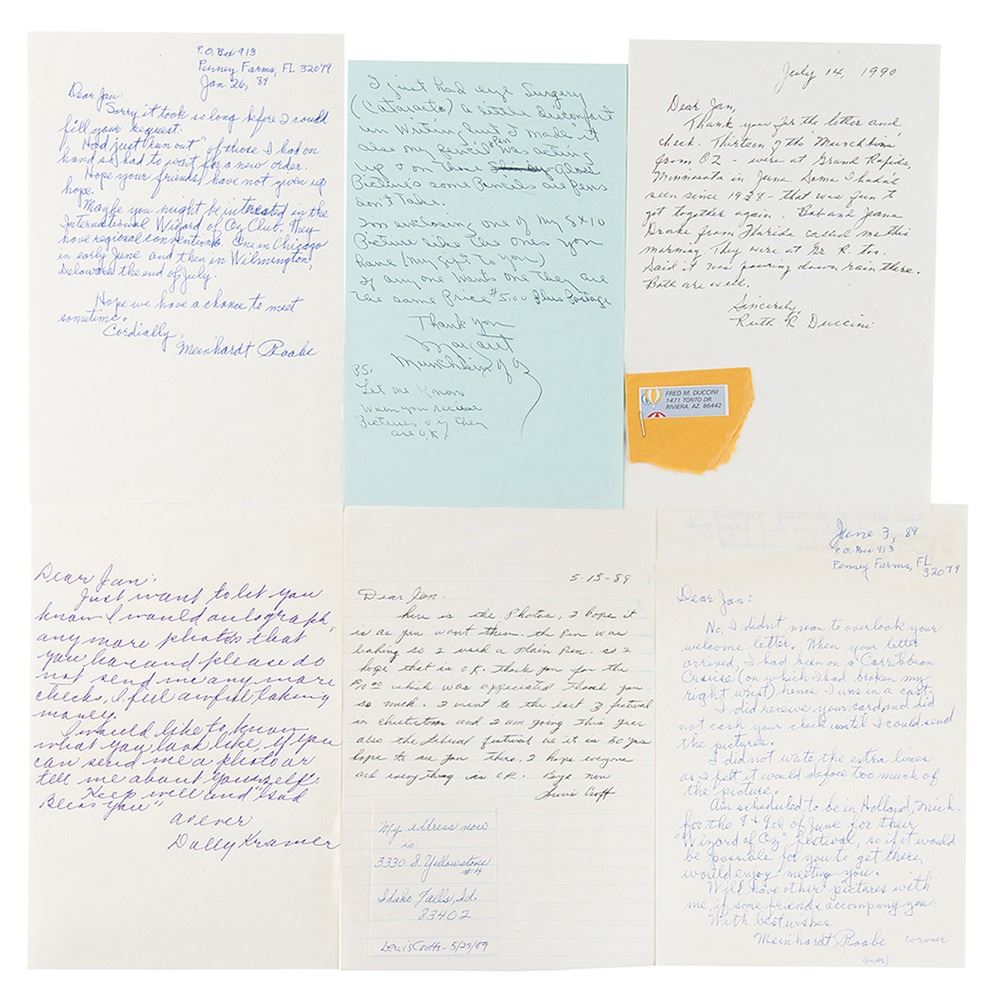 P.O. Box 913
Penney Farms, FL 32079
Jan 26, 89
Dear Jan:
Sorry it took so long before I could
fill your request.
Had just "run out" of those I had on
hand so had to wait for a new order.
Hope your friends have not given up
hope.
Maybe you might be interested in the
International Wizard of Oz Club. They
have regional conventions. One in Chicago
in early June and then in Wilmington,
Delaware the end of July.
Hope we have a chance to meet
sometime.
Cordially,
Meinhardt Raabe
I just had eye Surgery
(Cataracts) a little discomfort
in Writing but I made it
also my favorite Pen was acting
up & on those Gloss
Pictures some Pencils or Pens
don't take.
I'm enclosing one of my 8x10
Picture like the ones you
have (my gift to you)
If anyone wants one they are
the same Price $5.00 Plus Postage
Thank you
Margaret
Munchkin of Oz
PS.
Let me Know
when you receive
Pictures & if they
are O.K.
July 14, 1990
Dear Jan,
Thank you for the letter and
check. Thirteen of the Munchkins
from OZ - were at Grand Rapids,
Minnisota in June. Some I hadn't
seen since 1938 - that was fun to
get together again. Bob and Jeane
Drake from Florida called me this
morning They were at Gr. R. too.
Said it was pouring down rain there.
Both are well.
Sincerely,
Ruth R Duccini
FRED M. DUCCINI
1471 TONTO DR.
RIVIERA, AZ. 86442
Dear Jan:
Just want to let you
know I would autograph
any more photos that
you have and please do
not send me any more
checks, I feel awful taking
money.
I would like to know
what you look like, if you
can send me a photo or
tell me about yourself.
Keep well and "God
Bless You"
As ever
Dolly Kramer
5-15-89
Dear Jan:
here is the Photos, I hope it
is as you want them. the Pen was
so I used a plain Pen. so I
hope that is O.K. thank you for the
which was appreciated thank you
so much. I went to the last 3 festival
in chesterton and I am going this year
also the Liberal festival as it is 50 yrs
hope to see you there, I hope everyone
and everything is O.K. Bye now
Lewis Croft
My address now
is:
3330 S. Yellowstone
#H
Idaho Falls, Id.
83402
Lewis Croft - 5/29/89
June 3, 89
P.O. Box 913
Penney Farms, FL
32079
Dear Jan:
No, I didn't mean to overlook your
welcome letter. When your letter
arrived, I had been on a Carribbean
Cruise (on which I had broken my
right wrist) hence I was in a cast.
I did receive your card and did
not cash your check until I could send
the pictures.
I did not write the extra lines
as I felt it would deface too much of
the picture.
Am scheduled to be in Holland, Mich.
for the 8 & 9th of June for their
"Wizard of Oz" festival, so if it would
be possible for you to get there,
would enjoy meeting you.
Will have other pictures with
me, if some friends accompany you
With best wishes
Meinhardt Raabe coroner
(over)